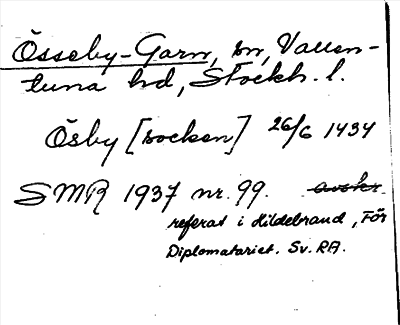 Össeby-Garn, sn, Vallen-
tuna hd, Stockh. l.
Ösby [socken] 26/6 1434
SMR 1937 nr. 99. avskr.
referat i Hildebrand, För
Diplomatariet. Sv. RA.